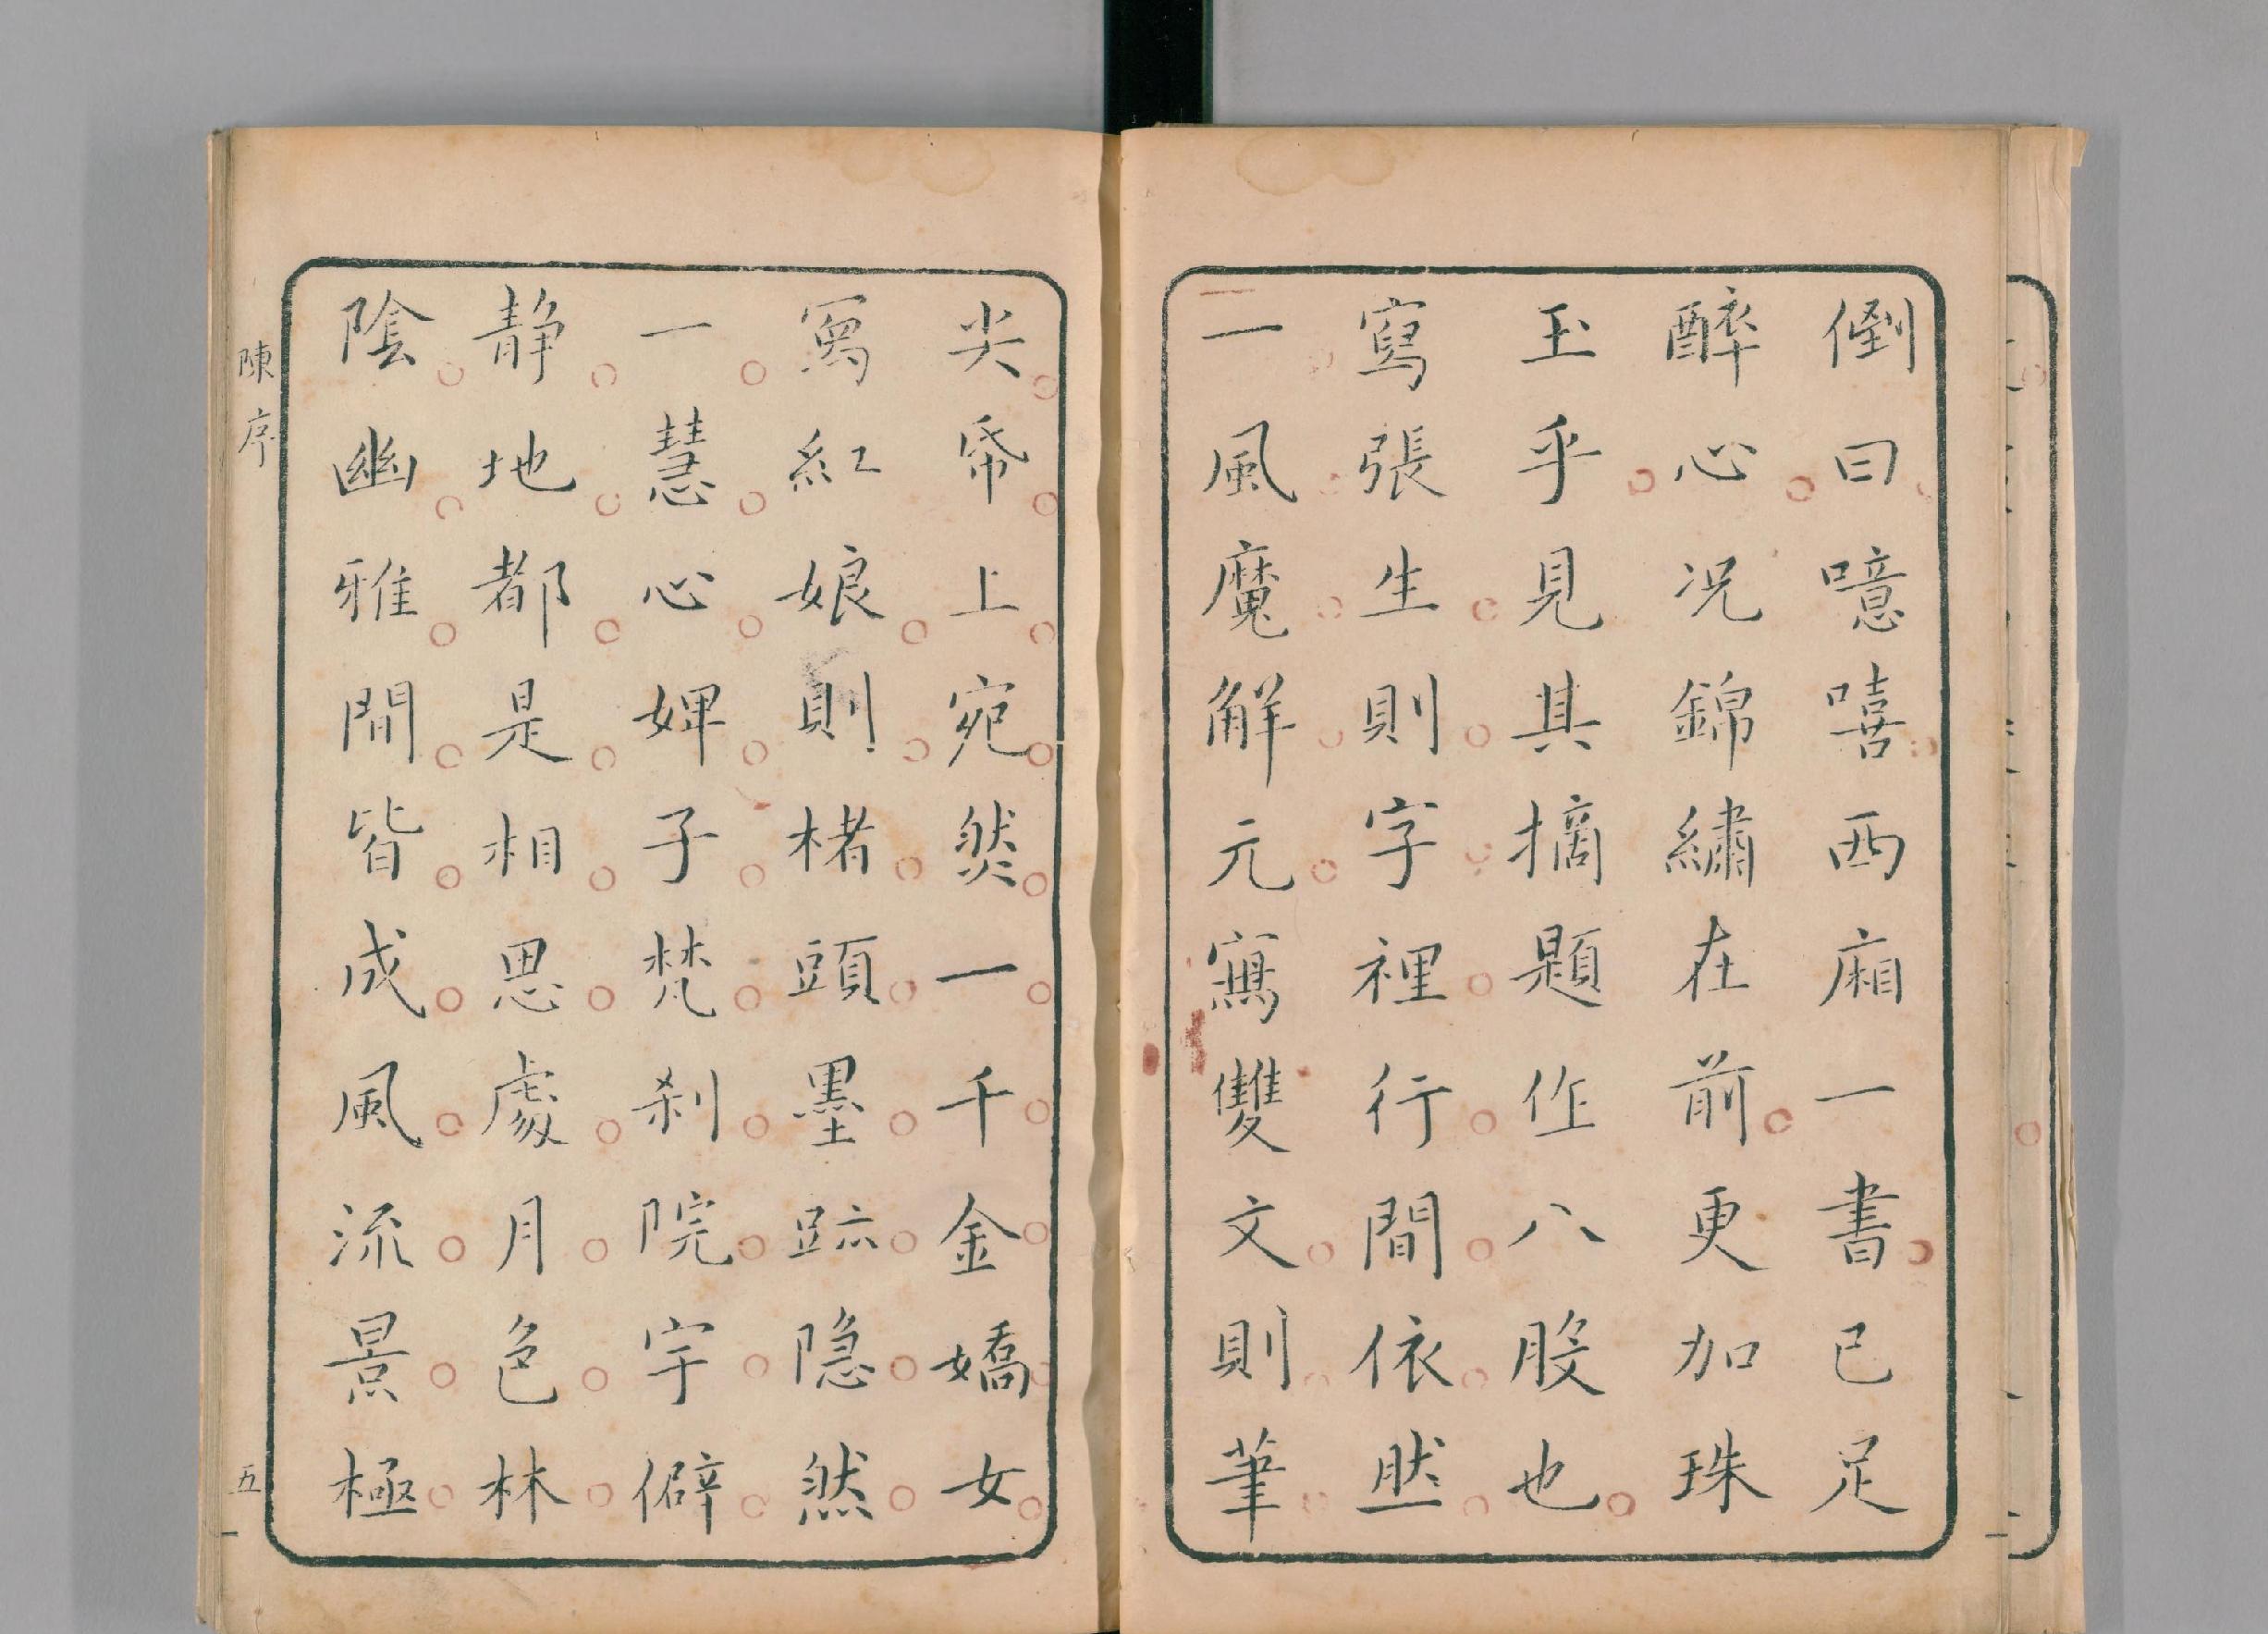 倒曰噫嘻西廂一書已足
醉心况錦繡在前更加珠
玉乎見其摘題作八股也
寫張生則字裡行間依然
一風魔解元寫雙文則筆
尖帋上宛然一千金嬌女
寫紅娘則楮頭墨跡隐然
一慧心婢子梵刹院宇僻
静地都是相思處月色林
陰幽雅間皆成風流景極
陳序
五